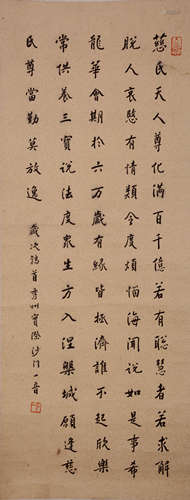 慈氏天人尊化滿百千億若有聰慧者若求解
脫人哀愍有情類令度煩惱海聞說如是事希
龍華會期於六万歲有緣皆拯濟誰不起欣樂
常供養三寶說法度眾生方入涅槃城願逢慈
氏尊當勤莫放逸 歲次鶉首秀州寶際沙門一音